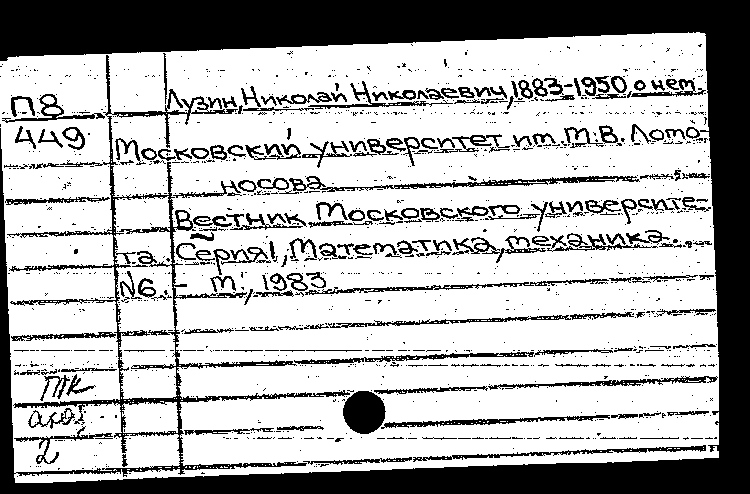 П8
449
Лузин, Николай Николаевич, 1883-1950 о нем.
Московский университет им. М.В. Ломо-
носова
Вестник Московского университе-
та. Серия 1, Математика, механика.
№6. - М., 1983.
ПТК
2